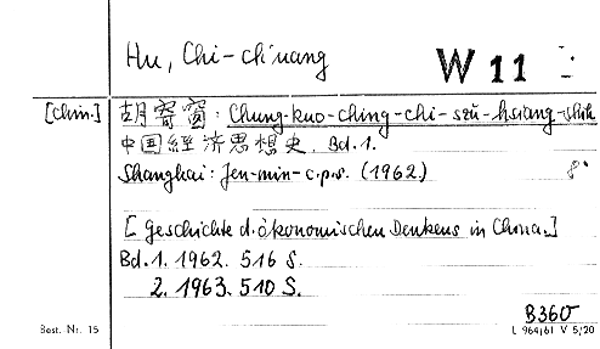 Hu, Chi-ch'uang W 11
[Chin.] 胡寄窗: Chung-kuo-ching-chi-szŭ-hsiang-shih
中国經济思想史. Bd. 1.
Shanghai: Jen-min-c.p.s. (1962.) 8°
[Geschichte d. ökonomischen Denkens in China.]
Bd. 1. 1962. 516 S.
2. 1963. 510 S.
B360
Best. Nr. 15 L 964/61 V 5/20